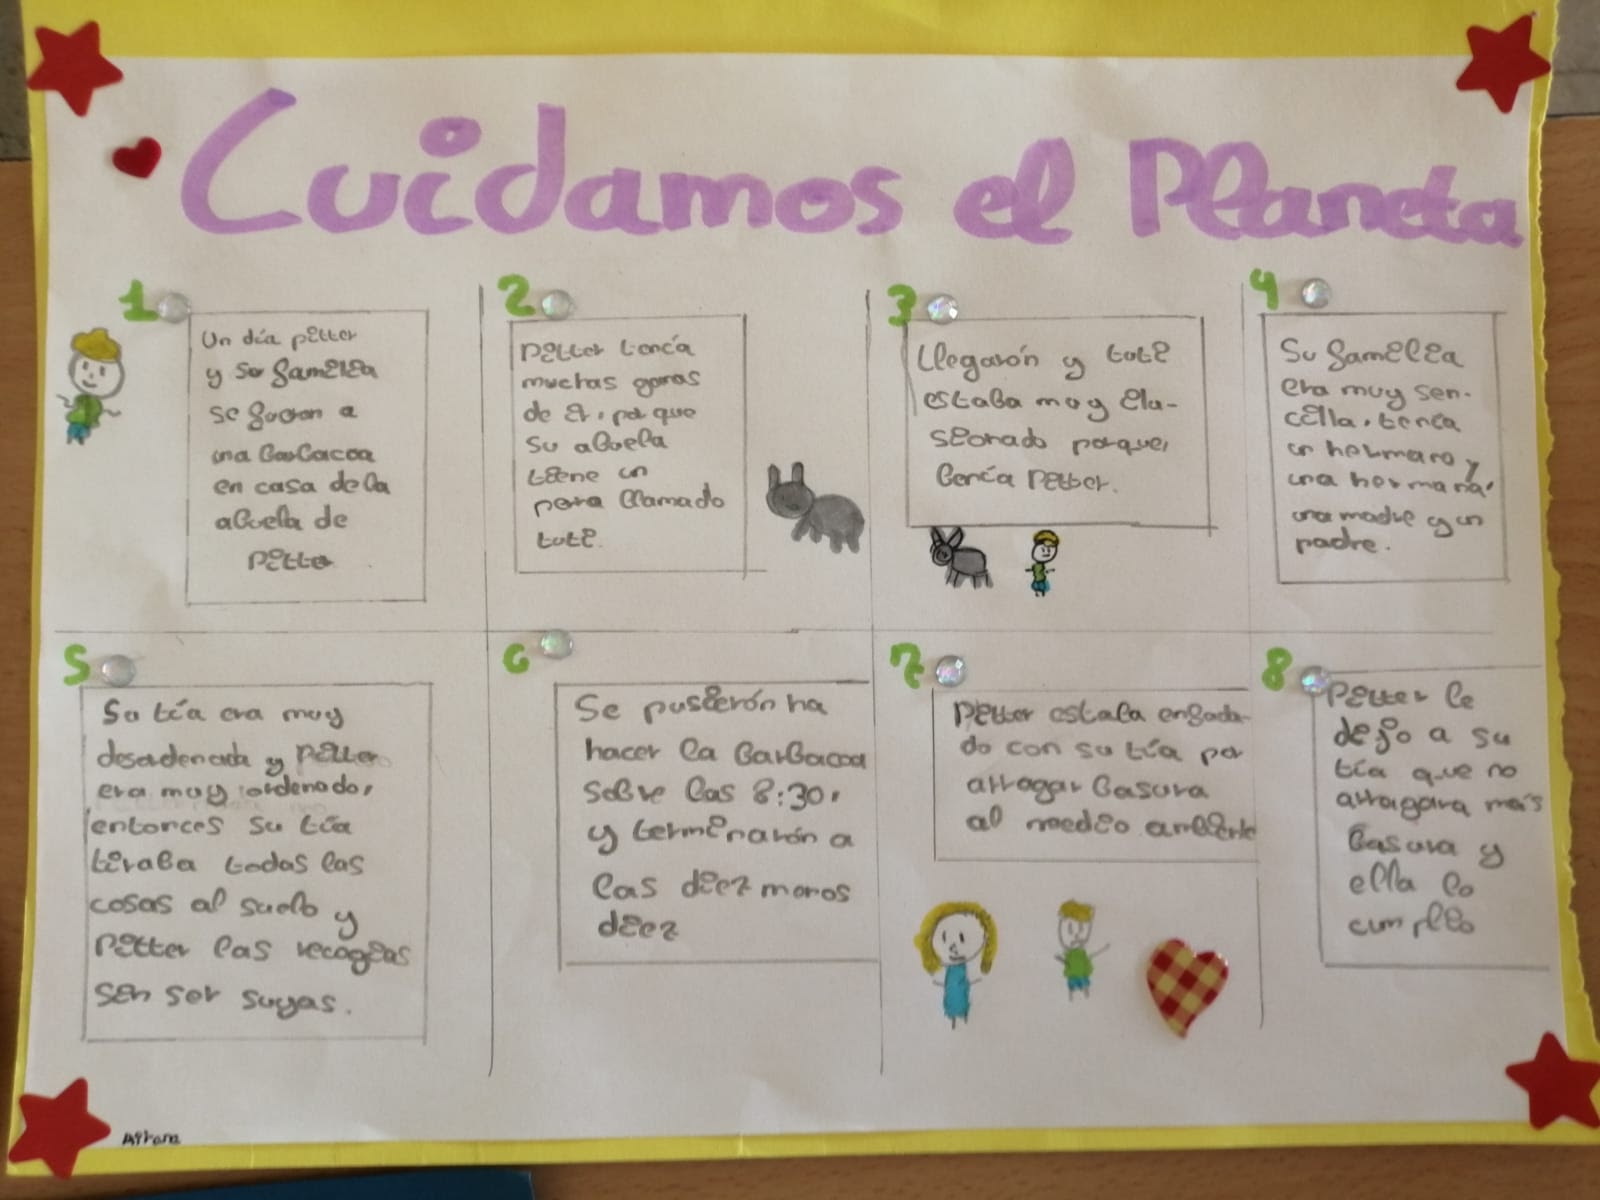 Cuidamos el Planeta
1
Un día pitter
y su familia
se fueron a
una barbacoa
en casa de la
abuela de
pitter
2
pitter tenía
muchas ganas
de ir, porque
su abuela
tiene un
perro llamado
toti.
3
Llegarón y toti
estaba muy ilu-
sionado porque,
benía pitter.
4
Su familia
era muy sen-
cilla, tenía
un hermano y
una hermana,
una madre y un
padre.
5
Su tía era muy
desordenada y pitter
era muy ordenado,
entonces su tía
tiraba todas las
cosas al suelo y
pitter las recogias
sin ser suyas.
6
Se pusierón ha
hacer la barbacoa
sobre las 8:30,
y terminarón a
las diez menos
diez
7
pitter estaba enfada-
do con su tía por
arrogar basura
al medio ambiente
8
Pitter le
dijo a su
tía que no
arrogara más
basura y
ella lo
cumplio
Aitana